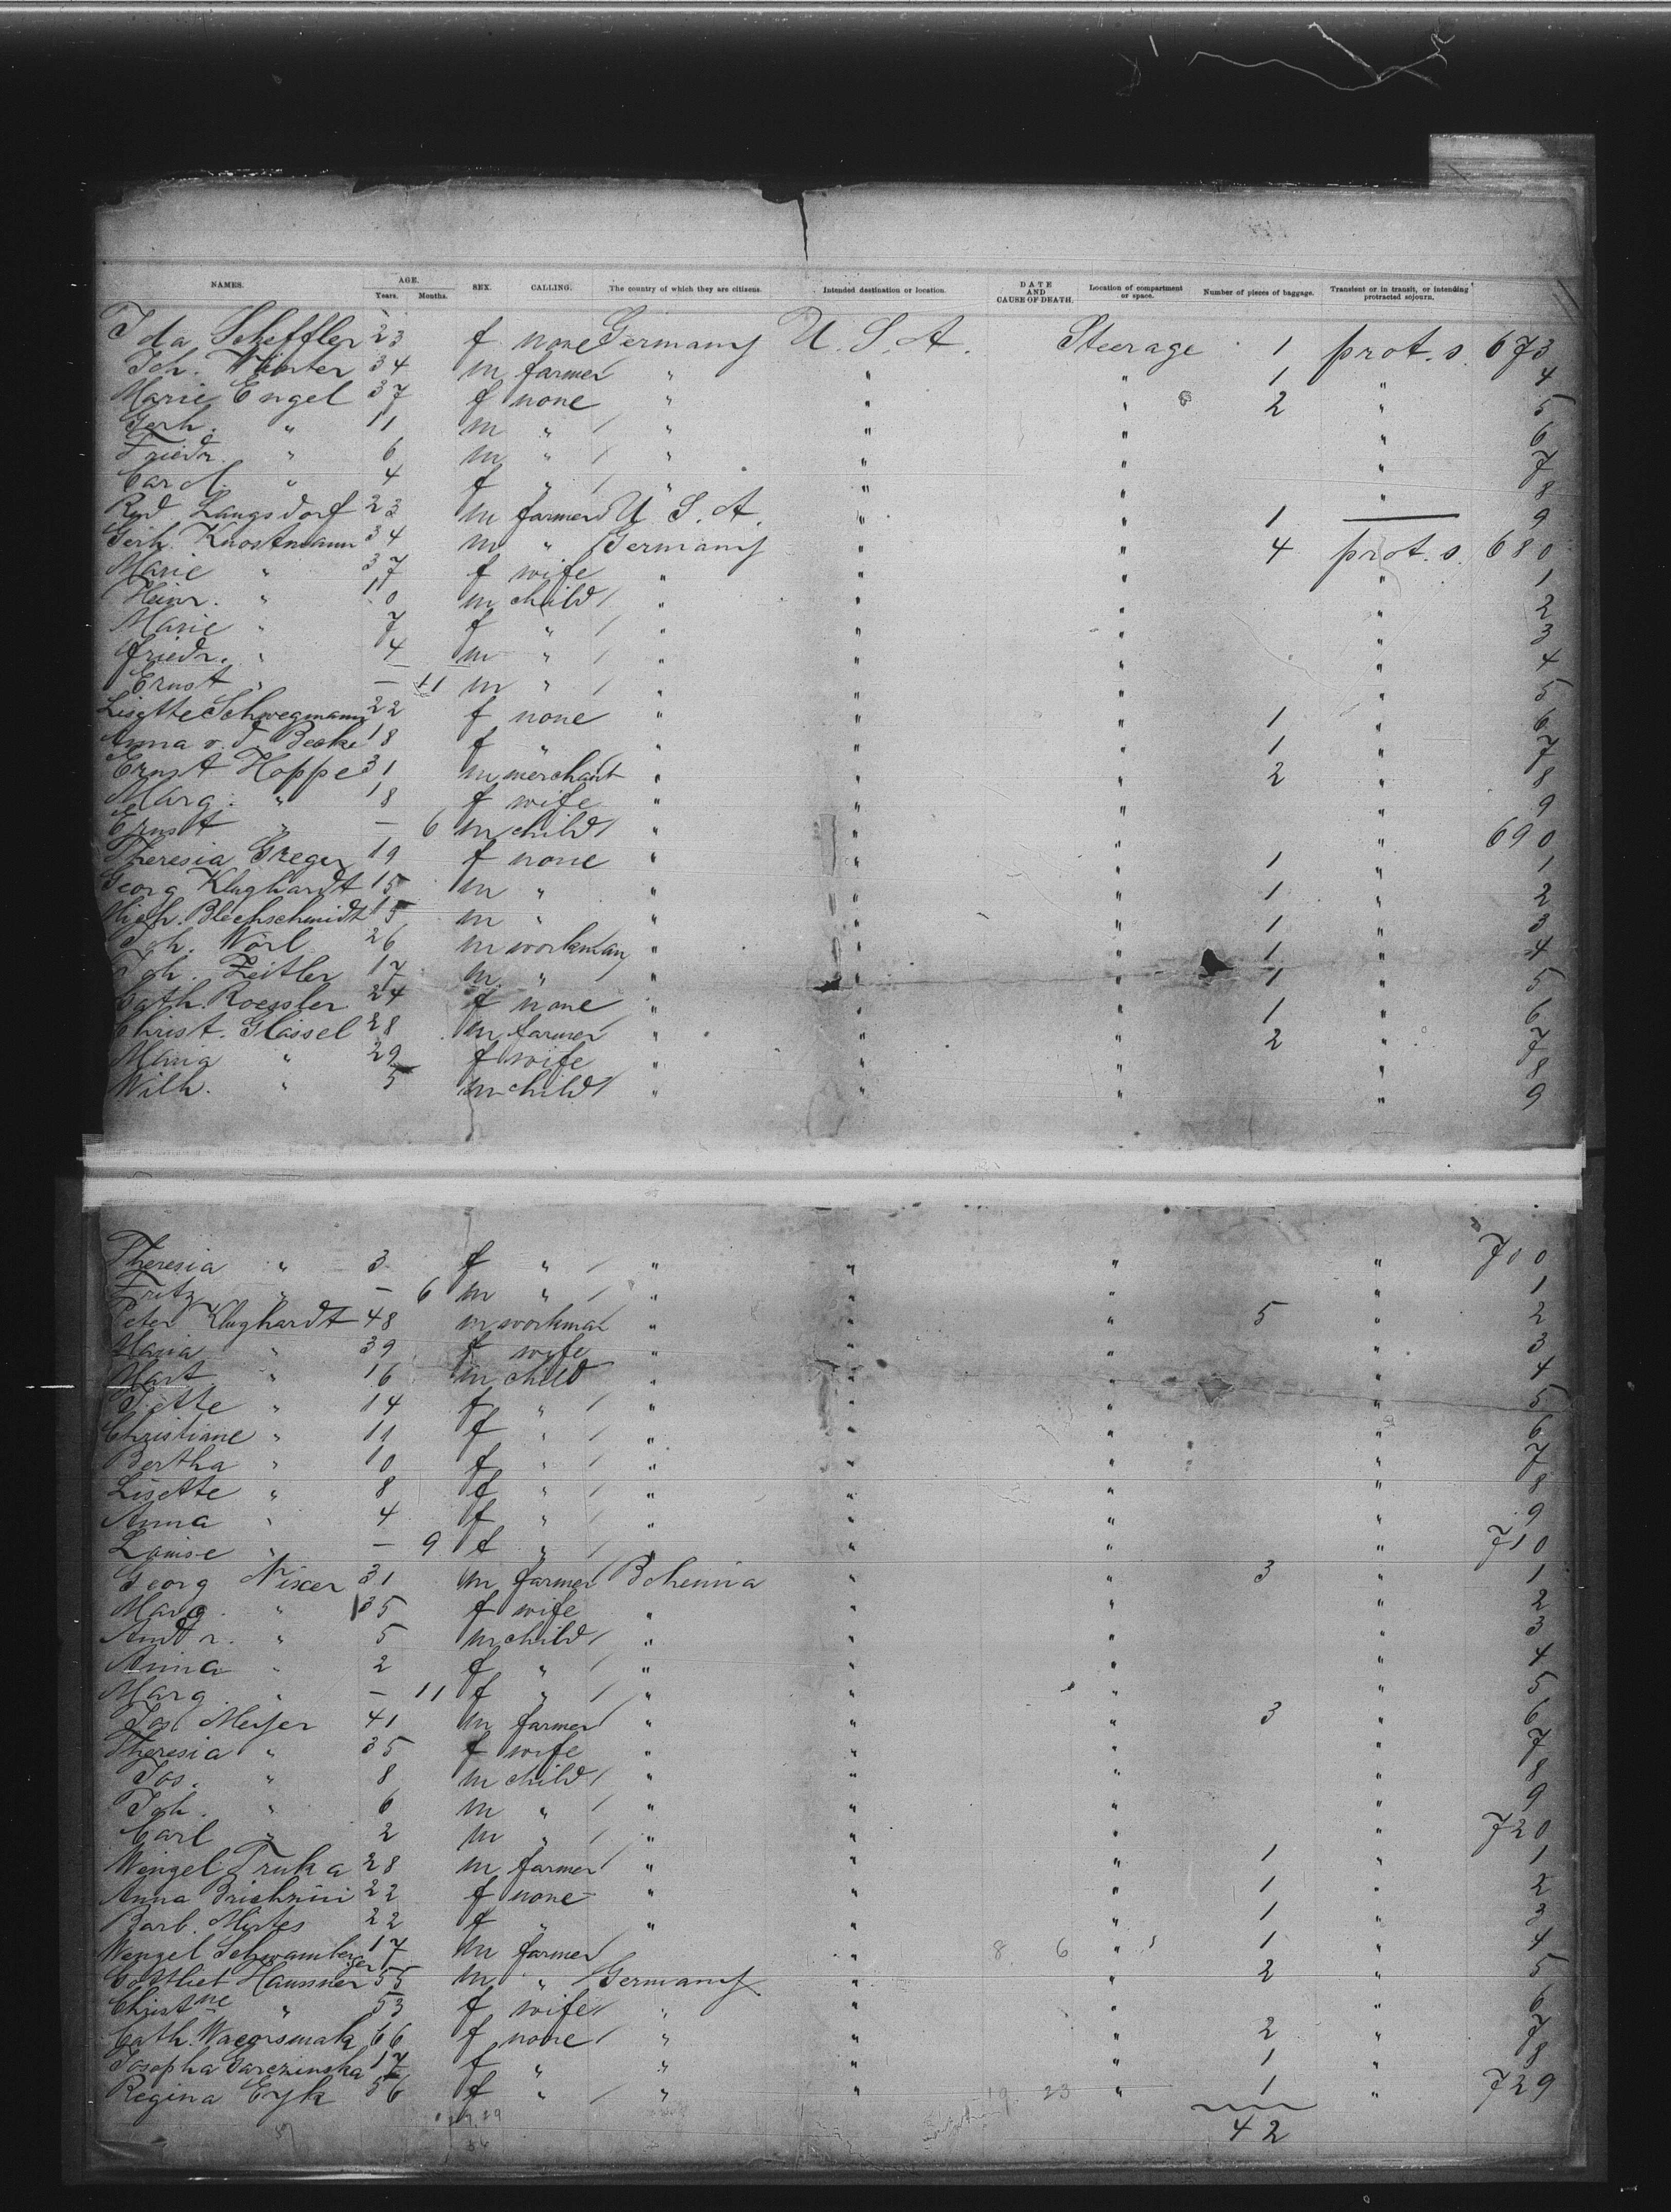 NAMES. AGE. Years. Months. SEX. CALLING. The country of which they are citizens. Intended destination or location. DATE AND CAUSE OF DEATH. Location of compartment or space. Number of pieces of baggage. Transient or in transit, or intending protracted sojourn.
Ida Scheffler 23 f none Germany U. S. A. Steerage 1 prot. s. 673
Joh. Winter 34 m farmer " " " 1 " 4
Marie Engel 37 f none " " " 2 " 5
Gerh. " 11 m " / " " " " 6
Friedr. " 6 m " / " " " " 7
Carol. " 4 f " / " " " " 8
Rud Langsdorf 23 m farmer U. S. A. " " 1 — 9
Gerh. Knostmann 34 m " Germany " " 4 prot. s. 680
Marie " 37 f wife " " " " 1
Heinr. " 10 m child / " " " " 2
Marie " 7 f " / " " " " 3
Friedr. " 4 m " / " " " " 4
Ernst " — 11 m " / " " " " 5
Lisette Schwegmann 22 f none " " " 1 " 6
Anna v. d. Beeke 18 f " " " " 1 " 7
Ernst Hoppe 31 m merchant " " " 2 " 8
Marg. " 18 f wife " " " " 9
Ernst " — 6 m child / " " " " 690
Theresia Greger 19 f none " " " 1 " 1
Georg Klughardt 15 m " " " " 1 " 2
Mich. Blechschmidt 15 m " " " " 1 " 3
Joh. Wörl 26 m workman " " " 1 " 4
Joh. Zeitler 17 m " " " " 1 " 5
Cath. Roessler 24 f none " " " 1 " 6
Christ. Glässel 28 m farmer " " " 2 " 7
Maria " 29 f wife " " " " 8
Wilh. " 5 m child / " " " " 9
Theresia " 3 f " / " " " " 700
Fritz " — 6 m " / " " " " 1
Peter Klughardt 48 m workman " " " 5 " 2
Maria " 39 f wife " " " " 3
Mart " 16 m child " " " " 4
Jette " 14 f " / " " " " 5
Christiane " 11 f " / " " " " 6
Bertha " 10 f " / " " " " 7
Lisette " 8 f " / " " " " 8
Anna " 4 f " / " " " " 9
Louise " — 9 f " / " " " " 710
Georg Nixer 31 m farmer Bohemia " " 3 " 1
Marg. " 35 f wife " " " " 2
Andr. " 5 m child / " " " " 3
Anna " 2 f " / " " " " 4
Marg. " — 11 f " / " " " " 5
Jos. Meyer 41 m farmer " " " 3 " 6
Theresia " 35 f wife " " " " 7
Jos. " 8 m child / " " " " 8
Joh. " 6 m " / " " " " 9
Carl " 2 m " / " " " " 720
Wenzel Truka 28 m farmer " " " 1 " 1
Anna 22 f none " " " 1 " 2
Barb. Mirtes 22 f " " " " 1 " 3
Wenzel Schwamberger 17 m farmer " 8 6 " 1 " 4
Gottliet Haussner 55 m " Germany " " 2 " 5
Christne " 53 f wife " " " " 6
Cath. 66 f none / " " " 2 " 7
Josepha 17 f " " " " 1 " 8
Regina Eyk 56 f " / " " 19 23 " 1 " 729
42